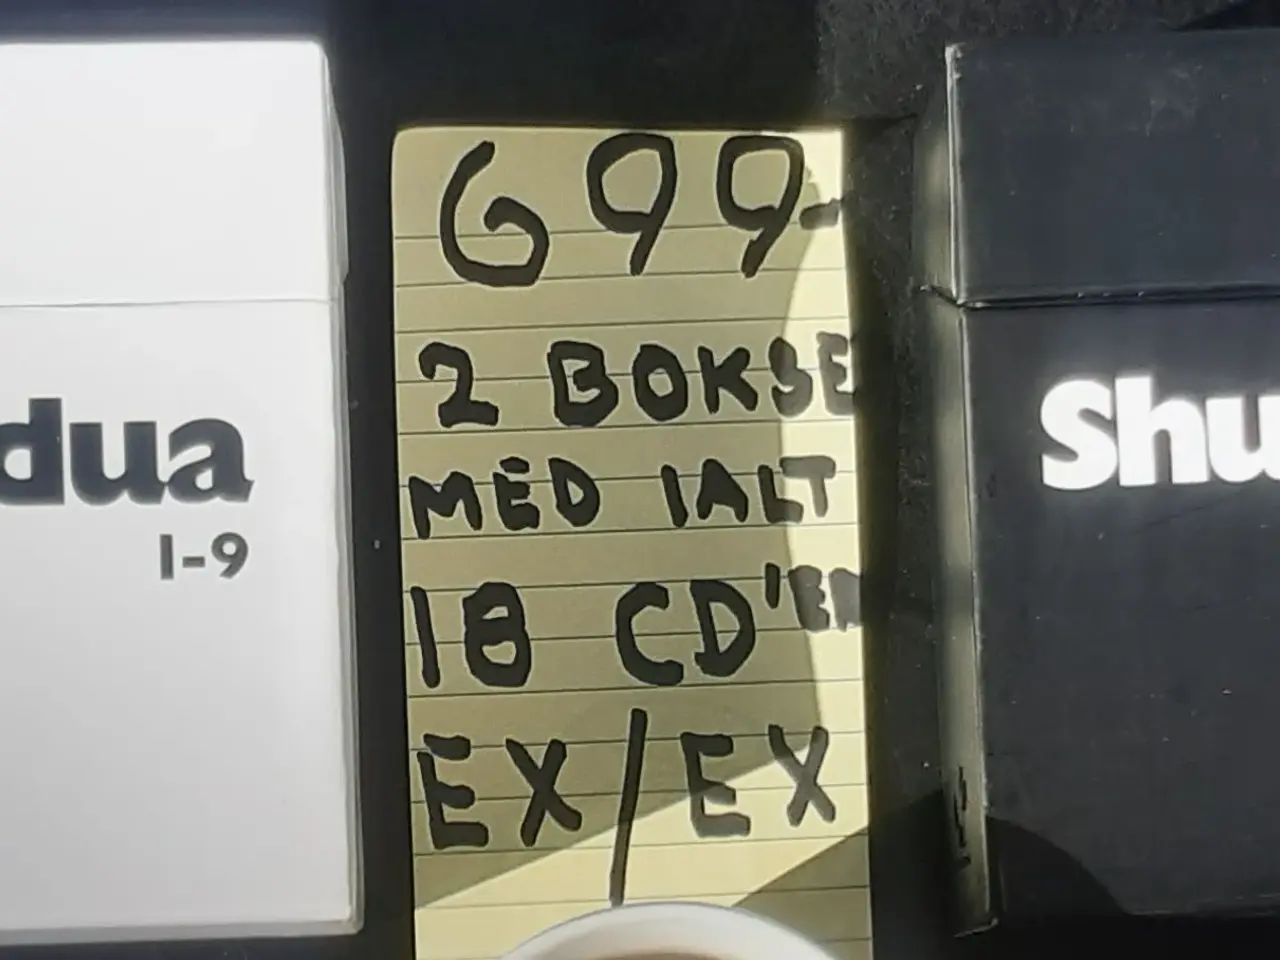 699-
2 BOKSE
MED IALT
18 CD'ER
EX/EX
dua
1-9
Shu